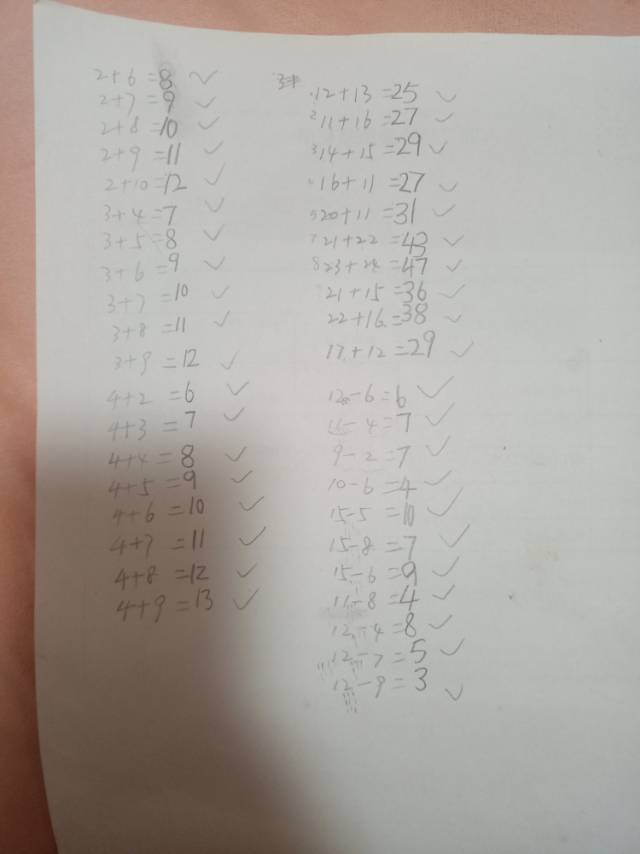 2+6=8 ✓
2+7=9 ✓
2+8=10 ✓
2+9=11 ✓
2+10=12 ✓
3+4=7 ✓
3+5=8 ✓
3+6=9 ✓
3+7=10 ✓
3+8=11 ✓
3+9=12 ✓
4+2=6 ✓
4+3=7 ✓
4+4=8 ✓
4+5=9 ✓
4+6=10 ✓
4+7=11 ✓
4+8=12 ✓
4+9=13 ✓
12+13=25 ✓
11+16=27 ✓
14+15=29 ✓
16+11=27 ✓
20+11=31 ✓
21+22=43 ✓
23+24=47 ✓
21+15=36 ✓
22+16=38 ✓
17+12=29 ✓
12-6=6 ✓
11-4=7 ✓
9-2=7 ✓
10-6=4 ✓
15-5=10 ✓
15-8=7 ✓
15-6=9 ✓
11-8=4 ✓
12-4=8 ✓
12-7=5 ✓
12-9=3 ✓